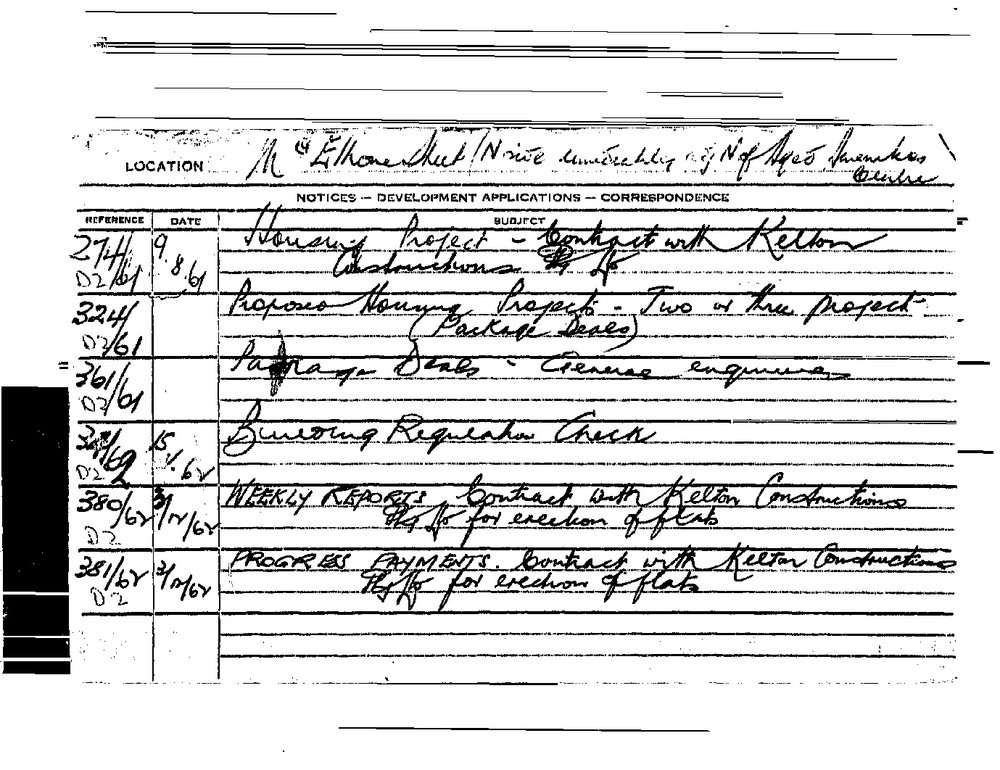 LOCATION McElhone Street / N side immediately adj N of Aged
Centre
NOTICES — DEVELOPMENT APPLICATIONS — CORRESPONDENCE
REFERENCE DATE SUBJECT
274/ 9. Housing Project - Contract with Kelton
D2/61 8/61 Constructions Pty Ltd
324/ Proposed Housing Projects - Two or three project
D2/61 (Package Deals)
361/ Package Deals - General enquiries
D2/61
15 Building Regulation Check
D2
380/62 3/12/62 WEEKLY REPORTS Contract with Kelton Constructions
D2 Pty Ltd for erection of flats
381/62 3/12/62 PROGRESS PAYMENTS. Contract with Kelton Constructions
D2 Pty Ltd for erection of flats